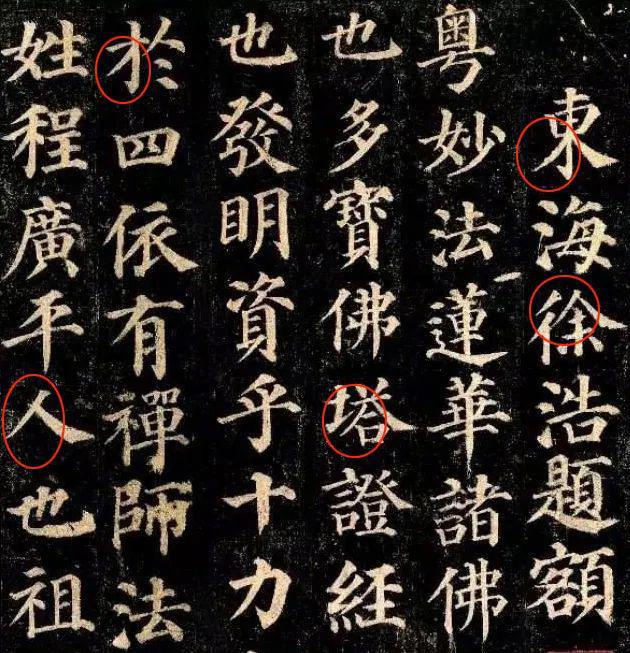 東海徐浩題額
粵妙法蓮華諸佛
也多寶佛塔證經
也發明資乎十力
於四依有禪師法
姓程廣平人也祖